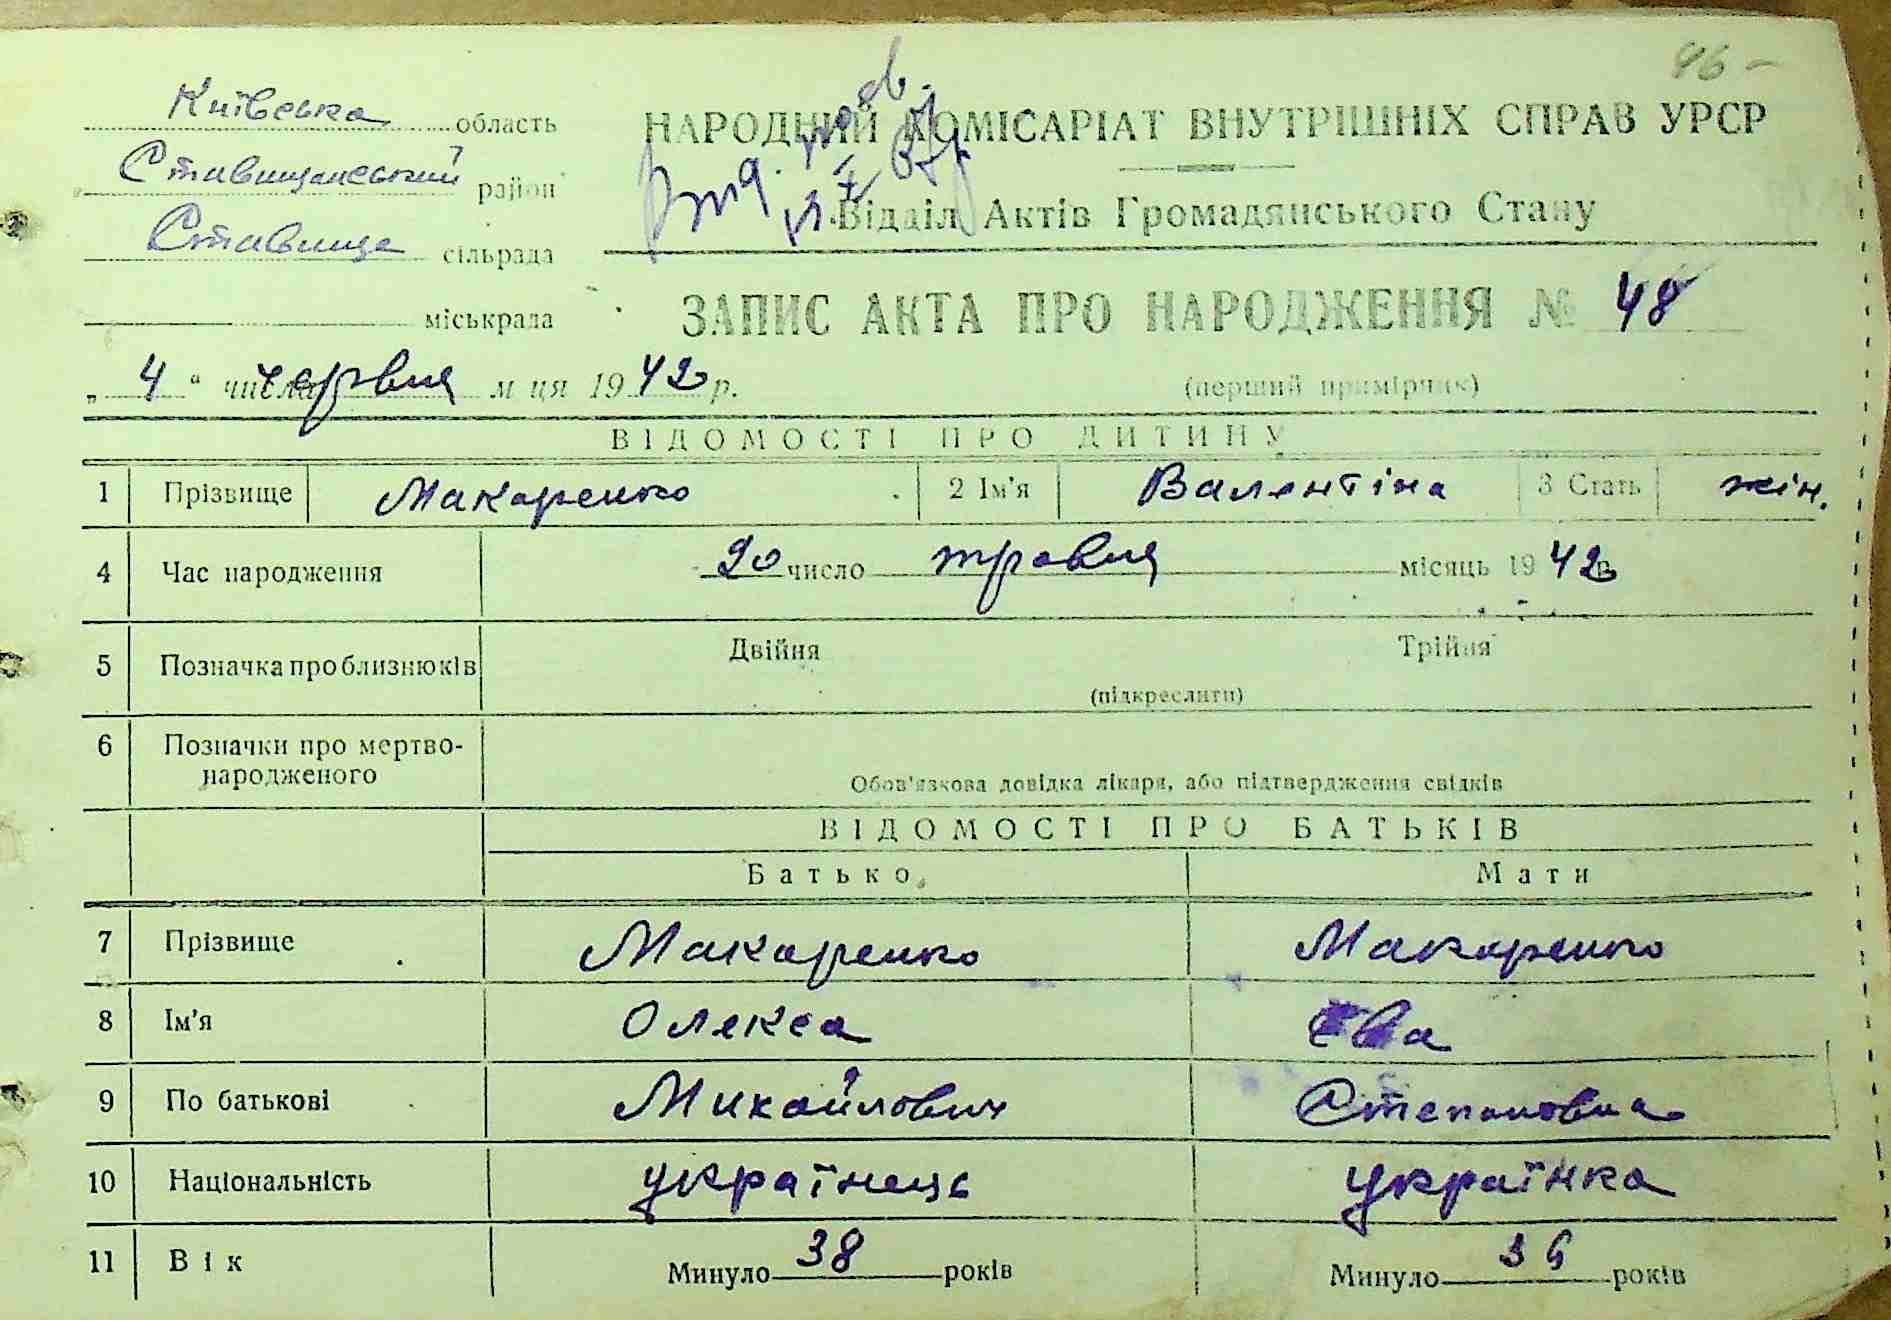 46 -
Київська область
Ставищанський район
Ставище сільрада
міськрада
НАРОДНИЙ КОМІСАРІАТ ВНУТРІШНІХ СПРАВ УРСР
Відділ Актів Громадянського Стану
ЗАПИС АКТА ПРО НАРОДЖЕННЯ № 48
„ 4 “ числа червня м ця 1942 р.
(перший примірник)
ВІДОМОСТІ ПРО ДИТИНУ
1 Прізвище Макаренко 2 Ім'я Валентіна 3 Стать жін.
4 Час народження 20 число травня місяць 1942 р.
5 Позначка про близнюків Двійня Трійня
(підкреслити)
6 Позначки про мертво-
народженого
Обов'язкова довідка лікаря, або підтвердження свідків
ВІДОМОСТІ ПРО БАТЬКІВ
Батько Мати
7 Прізвище Макаренко Макаренко
8 Ім'я Олекса Єва
9 По батькові Михайлович Степановна
10 Національність українець українка
11 Вік Минуло 38 років Минуло 36 років